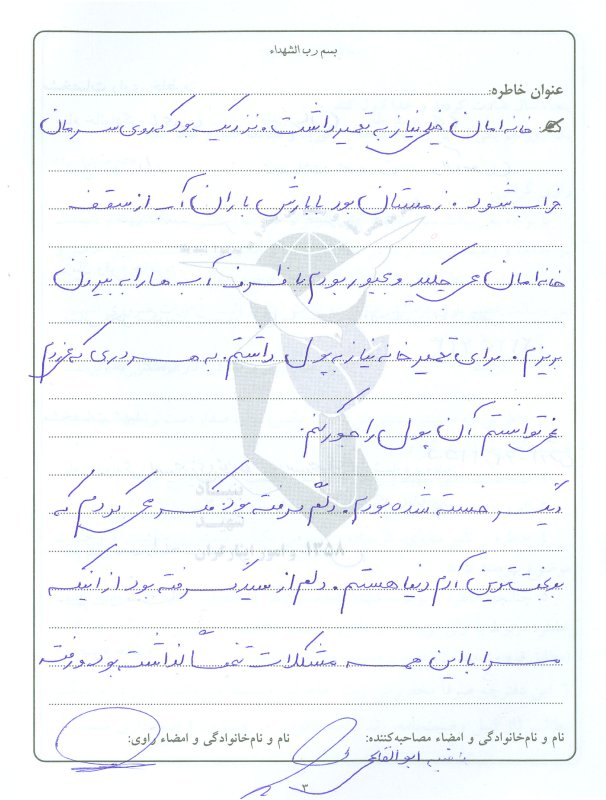 بسم رب الشهداء
عنوان خاطره:
خانه امان خیلی نیاز به تعمیر داشت. نزدیک بود که روی سرمان
خراب شود. زمستان بود با بارش باران آب از سقف
خانه امان می چکید و مجبور بودم با ظرف آب ها را به بیرون
بریزم. برای تعمیر خانه نیاز به پول داشتم. به هر دری که می زدم
نمی توانستم آن پول را جور کنم.
دیگر خسته شده بودم. دلم گرفته بود فکر می کردم که
بدبخت ترین آدم دنیا هستم. دلم از گرفته بود از اینکه
مرا با این همه مشکلات تنها گذاشته بود و رفته
بنیاد شهید
و امور ایثارگران
۱۳۵۸
نام و نام‌خانوادگی و امضاء مصاحبه‌کننده:
نام و نام‌خانوادگی و امضاء راوی:
ابوالقاسمی
۳